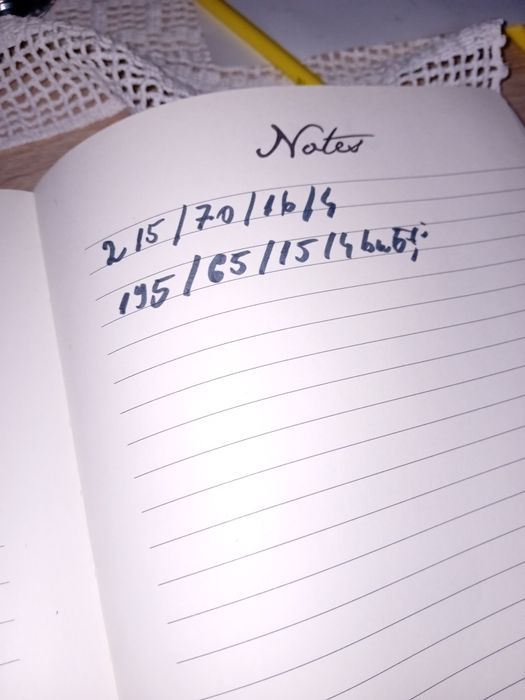 Notes
215/70/16/4
195/65/15/4